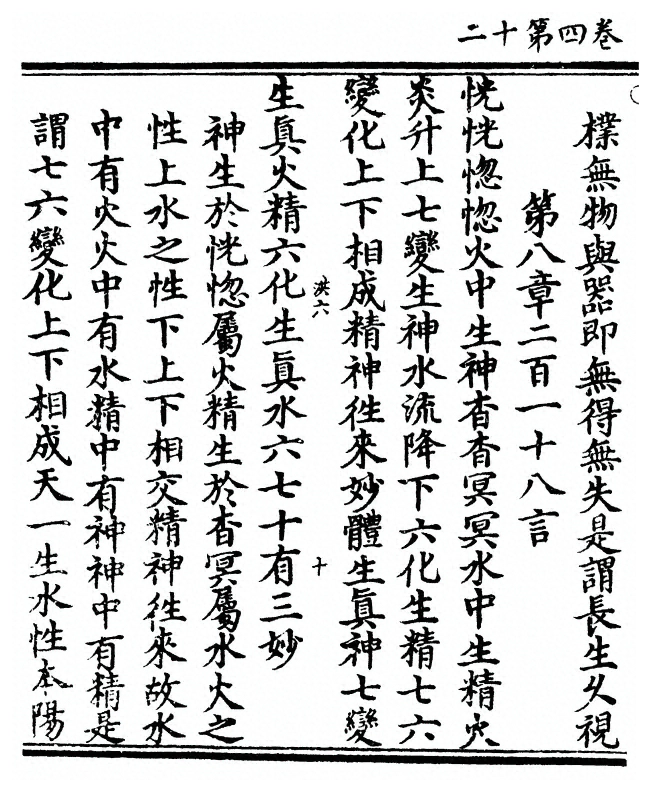 二十第四卷
樸無物與器即無得無失是謂長生久視
第八章二百一十八言
恍恍惚惚火中生神杳杳冥冥水中生精火
炎升上七變生神水流降下六化生精七六
變化上下相成精神徃來妙體生眞神七變
洪六
十
生眞火精六化生眞水六七十有三妙
神生於恍惚屬火精生於杳冥屬水火之
性上水之性下上下相交精神徃來故水
中有火火中有水精中有神神中有精是
謂七六變化上下相成天一生水性本陽